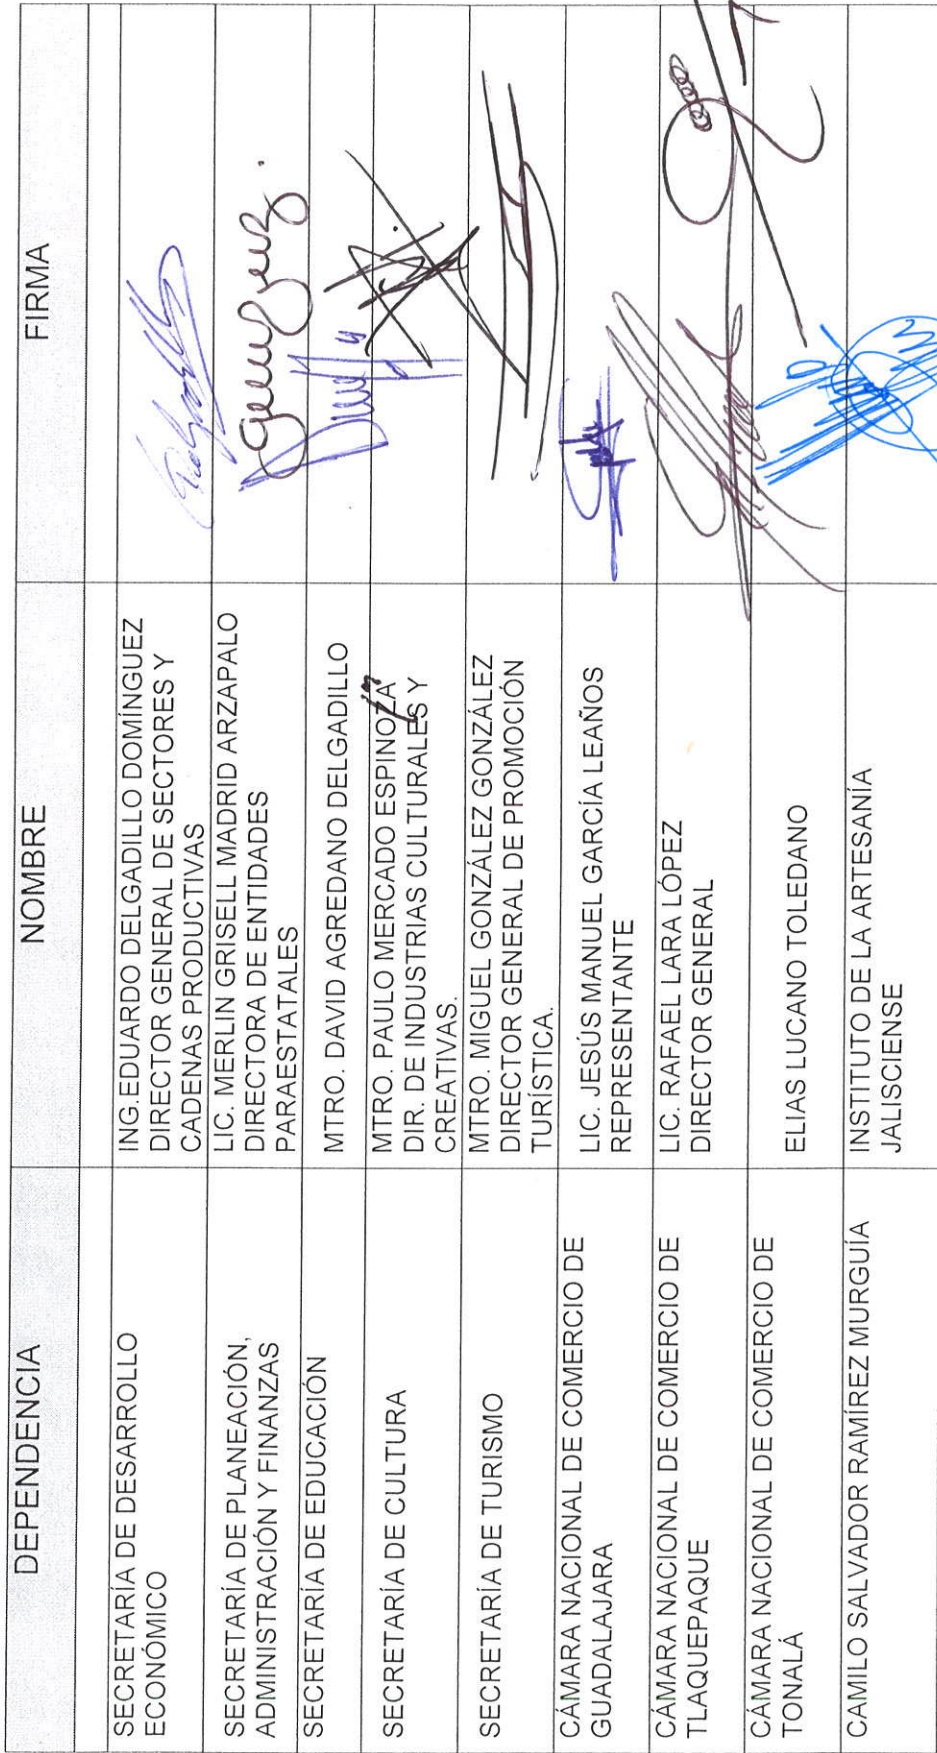 DEPENDENCIA
NOMBRE
FIRMA
SECRETARÍA DE DESARROLLO
ECONÓMICO
ING.EDUARDO DELGADILLO DOMÍNGUEZ
DIRECTOR GENERAL DE SECTORES Y
CADENAS PRODUCTIVAS
SECRETARÍA DE PLANEACIÓN,
ADMINISTRACIÓN Y FINANZAS
LIC. MERLIN GRISELL MADRID ARZAPALO
DIRECTORA DE ENTIDADES
PARAESTATALES
SECRETARÍA DE EDUCACIÓN
MTRO. DAVID AGREDANO DELGADILLO
SECRETARÍA DE CULTURA
MTRO. PAULO MERCADO ESPINOZA
DIR. DE INDUSTRIAS CULTURALES Y
CREATIVAS.
SECRETARÍA DE TURISMO
MTRO. MIGUEL GONZÁLEZ GONZÁLEZ
DIRECTOR GENERAL DE PROMOCIÓN
TURÍSTICA.
CÁMARA NACIONAL DE COMERCIO DE
GUADALAJARA
LIC. JESÚS MANUEL GARCÍA LEAÑOS
REPRESENTANTE
CÁMARA NACIONAL DE COMERCIO DE
TLAQUEPAQUE
LIC. RAFAEL LARA LÓPEZ
DIRECTOR GENERAL
CÁMARA NACIONAL DE COMERCIO DE
TONALÁ
ELIAS LUCANO TOLEDANO
CAMILO SALVADOR RAMÍREZ MURGUÍA
INSTITUTO DE LA ARTESANÍA
JALISCIENSE